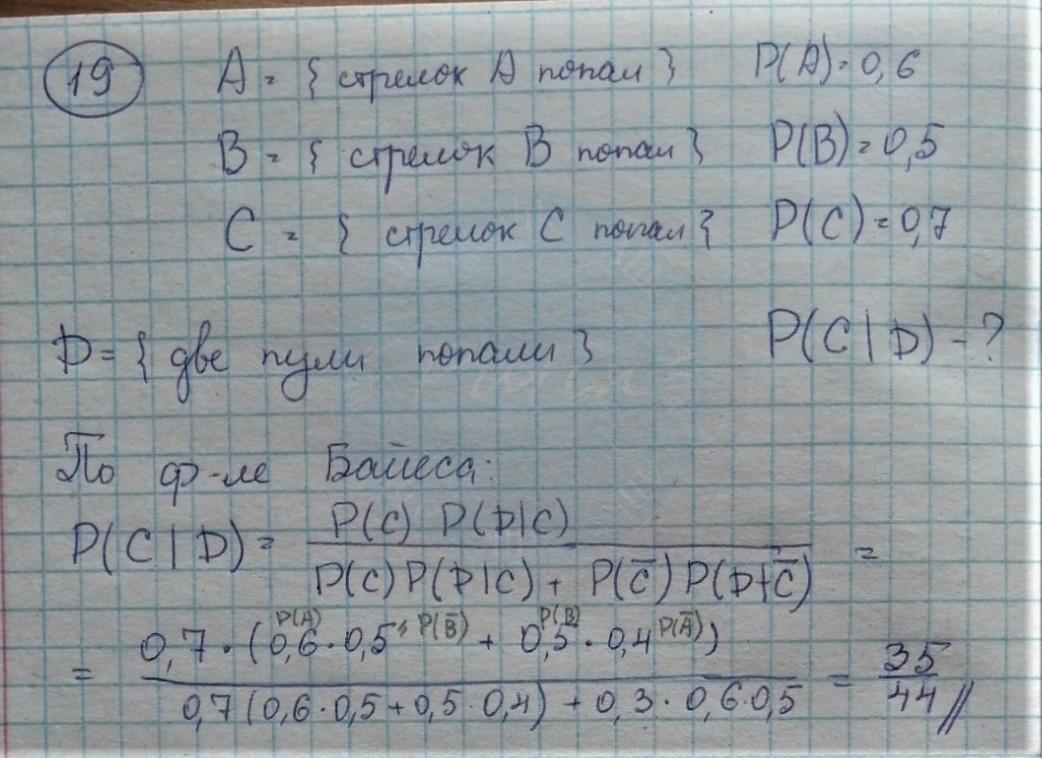 19 A = { стрелок A попал } P(A) = 0,6
B = { стрелок B попал } P(B) = 0,5
C = { стрелок C попал } P(C) = 0,7
D = { две пули попали } P(C | D) - ?
По ф-ле Байеса:
P(C | D) = P(C) P(D|C) / P(C) P(D|C) + P(C̅) P(D|C̅) =
= 0,7 · (0,6 · 0,5 + 0,5 · 0,4) / 0,7 (0,6 · 0,5 + 0,5 · 0,4) + 0,3 · 0,6 · 0,5 = 35/44 //
P(A) P(B̅) P(B) P(A̅)